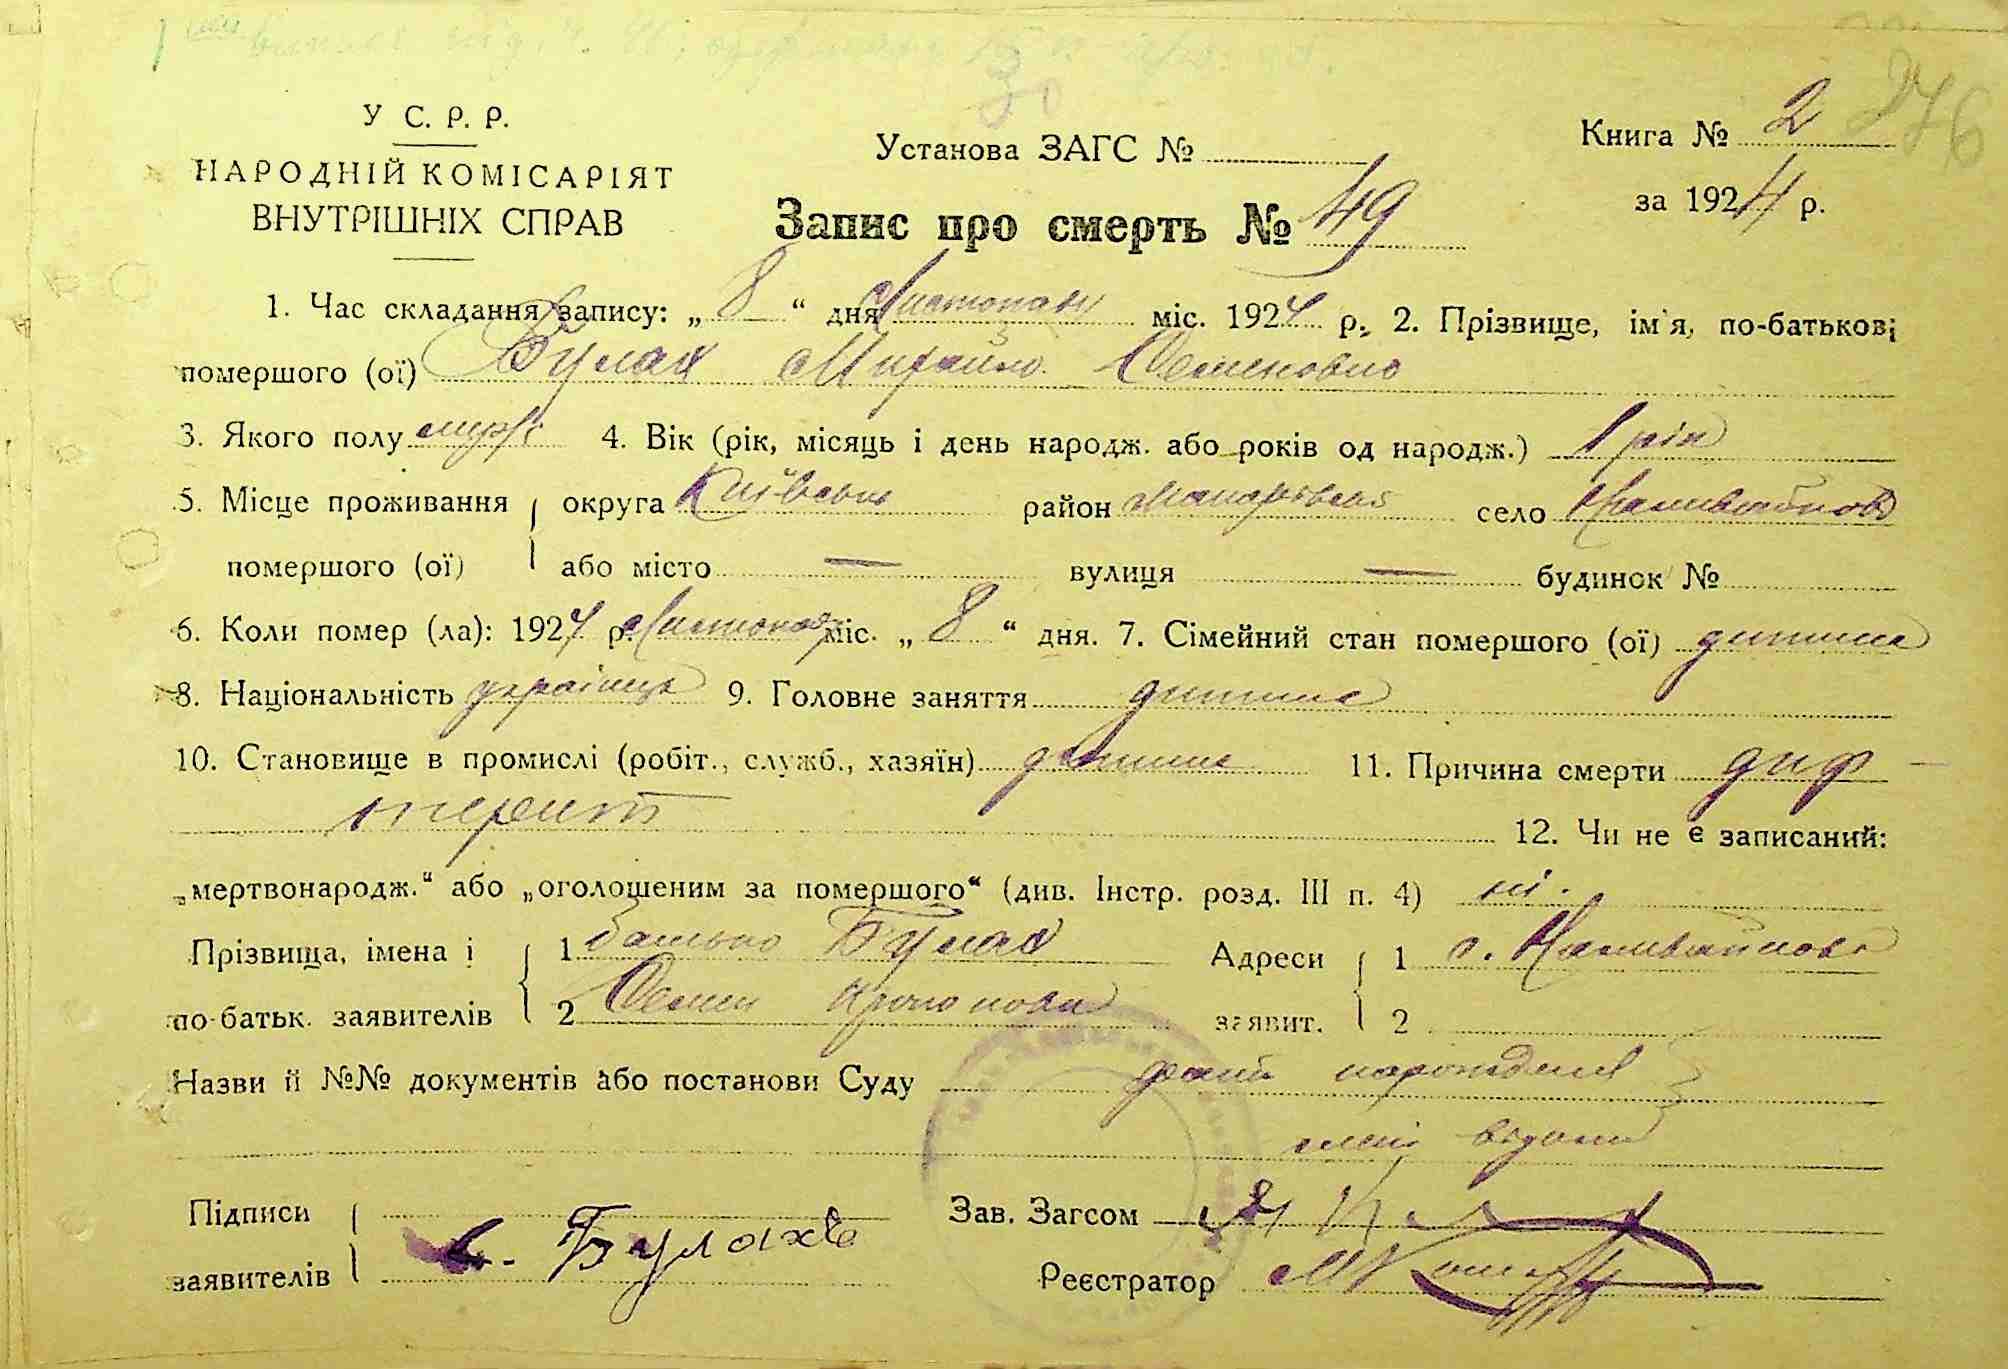 276
У С. Р. Р.
НАРОДНІЙ КОМІСАРІЯТ
ВНУТРІШНІХ СПРАВ
Установа ЗАГС №
Книга № 2
за 1924 р.
Запис про смерть № 49
1. Час складання запису: „ 8 “ дня Листопада міс. 1924 р. 2. Прізвище, ім'я, по-батькові
помершого (ої) Булах Михайло Семенович
3. Якого полу муж. 4. Вік (рік, місяць і день народж. або років од народж.) 1 рік
5. Місце проживання округа Київська район Макарівський село Наливайковк
помершого (ої) або місто — вулиця — будинок №
6. Коли помер (ла): 1924 р. Листопад міс. „ 8 “ дня. 7. Сімейний стан помершого (ої) дитина
8. Національність українець 9. Головне заняття дитина
10. Становище в промислі (робіт., служб., хазяїн) дитина 11. Причина смерти диф-
терит 12. Чи не є записаний:
„мертвонародж.“ або „оголошеним за помершого“ (див. Інстр. розд. III п. 4) ні.
Прізвища, імена і 1 батько Булах Адреси 1 с. Наливайковк
по-батьк. заявителів 2 Семен заявит. 2
Назви й №№ документів або постанови Суду факт народження
мені відомий
Підписи Зав. Загсом
заявителів Булахъ Реєстратор